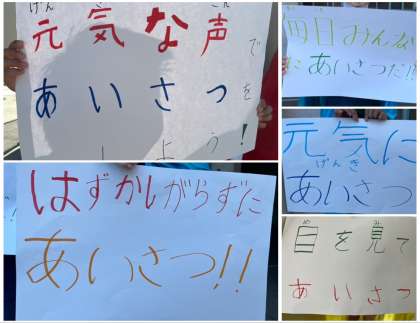 げん き こえ
元気な声で
あいさつを
しよう!
毎日みんな
にあいさつだ!!
元気に
げんき
あいさつ
はずかしがらずに
あいさつ!!
目を見て
あいさつ